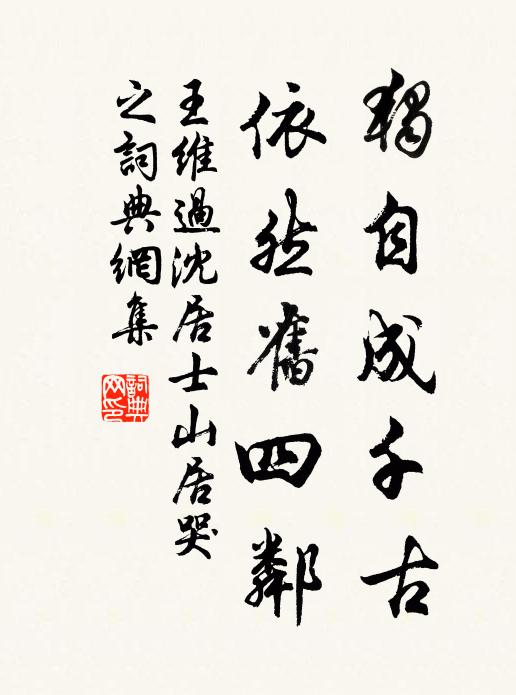 獨自成千古
依然舊四鄰
王維過沈居士山居哭
之詞典網集
詞典網印